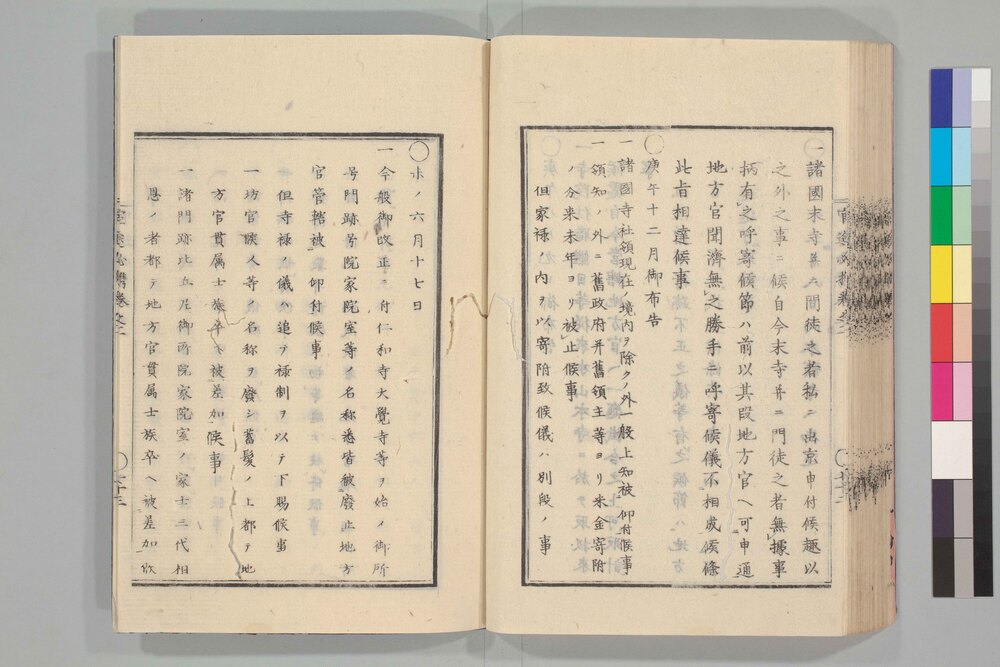 一諸國末寺并ニ門徒之者私ニ出京申付候趣以
之外之事ニ候自今末寺并ニ門徒之者無據事
柄有之呼寄候節ハ前以其段地方官ヘ可申通
地方官聞濟無之勝手ニ呼寄候儀不相成候條
此旨相達候事
〇庚午十二月御布告
一諸國寺社領現在ノ境内ヲ除クノ外一般上知被仰付候事
一領知ノ外ニ舊政府并舊領主等ヨリ米金寄附
ノ分米未年ヨリ被止候事
但家禄ノ内ヲ以寄附致候儀ハ別段ノ事
〇未ノ六月十七日
一今般御改正ニ付仁和寺大覺寺等ヲ始メ御所
号門跡号院家院室等ノ名称悉皆被廢止地方
官管轄被仰付候事
但寺禄ノ儀ハ追テ禄制ヲ以テ下賜候事
一坊官候人等ノ名称ヲ廢シ舊髪ノ上都テ地
方官貫属士族卒ヘ被差加候事
一諸門跡比丘尼御所院家院室ノ家士三代相
恩ノ者都テ地方官貫属士族卒ヘ被差加